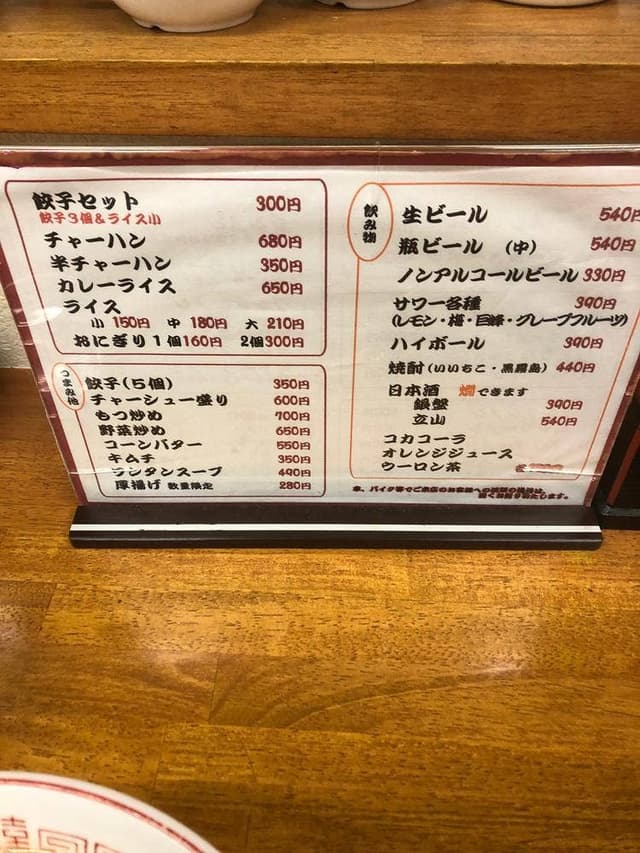 餃子セット 300円
餃子3個&ライス小
チャーハン 680円
半チャーハン 350円
カレーライス 650円
ライス
小 150円 中 180円 大 210円
おにぎり 1個160円 2個300円
つまみ他
餃子(5個) 350円
チャーシュー盛り 600円
もつ炒め 700円
野菜炒め 650円
コーンバター 550円
キムチ 350円
ランタンスープ 490円
厚揚げ 数量限定 280円
飲み物
生ビール 540円
瓶ビール (中) 540円
ノンアルコールビール 330円
サワー各種 390円
(レモン・梅・巨峰・グレープフルーツ)
ハイボール 390円
焼酎(いいちこ・黒霧島) 440円
日本酒 燗できます
銀盤 390円
立山 540円
コカコーラ
オレンジジュース
ウーロン茶
車、バイク等でご来店のお客様への酒類の提供は、
固くお断り致します。